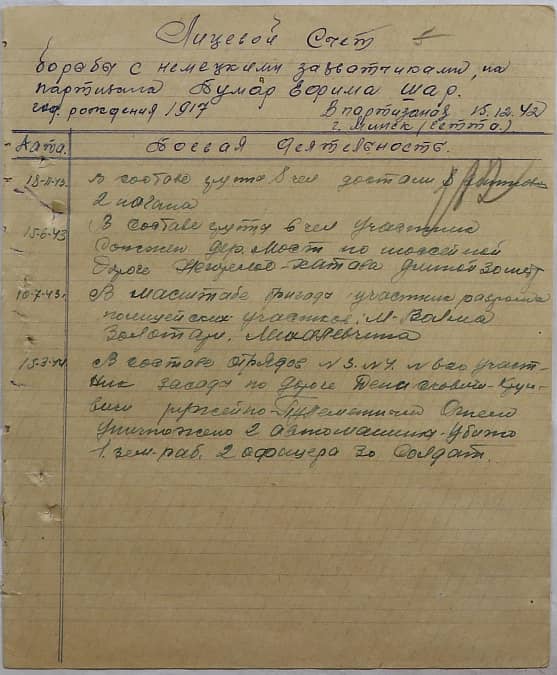 Лицевой Счет
борьбы с немецкими захватчиками, на
партизана Тумар Ефима Шар.
год. рождения 1917 В партизанах 15.12.42
г. Минск (гетто.)
Дата. Боевая Деятельность.
18-11-43. В составе группы 8 чел достали
2 нагана
15-6-43 В составе группы 6 чел участник
Сожжен дер. Мост по шоссейной
Дороге длиной 30 метр
10-7-43. В масштабе бригады участник разгрома
полицейских участков: М-Волма
Золотари, Михалевщина
15-3-44. В составе отрядов N 3. N 1. участ-
ник засады по Дороге
ружейно-Пулеметным Огнем
Уничтожено 2 автомашины-Убито
1. зем-раб. 2 офицера 30 Солдат.